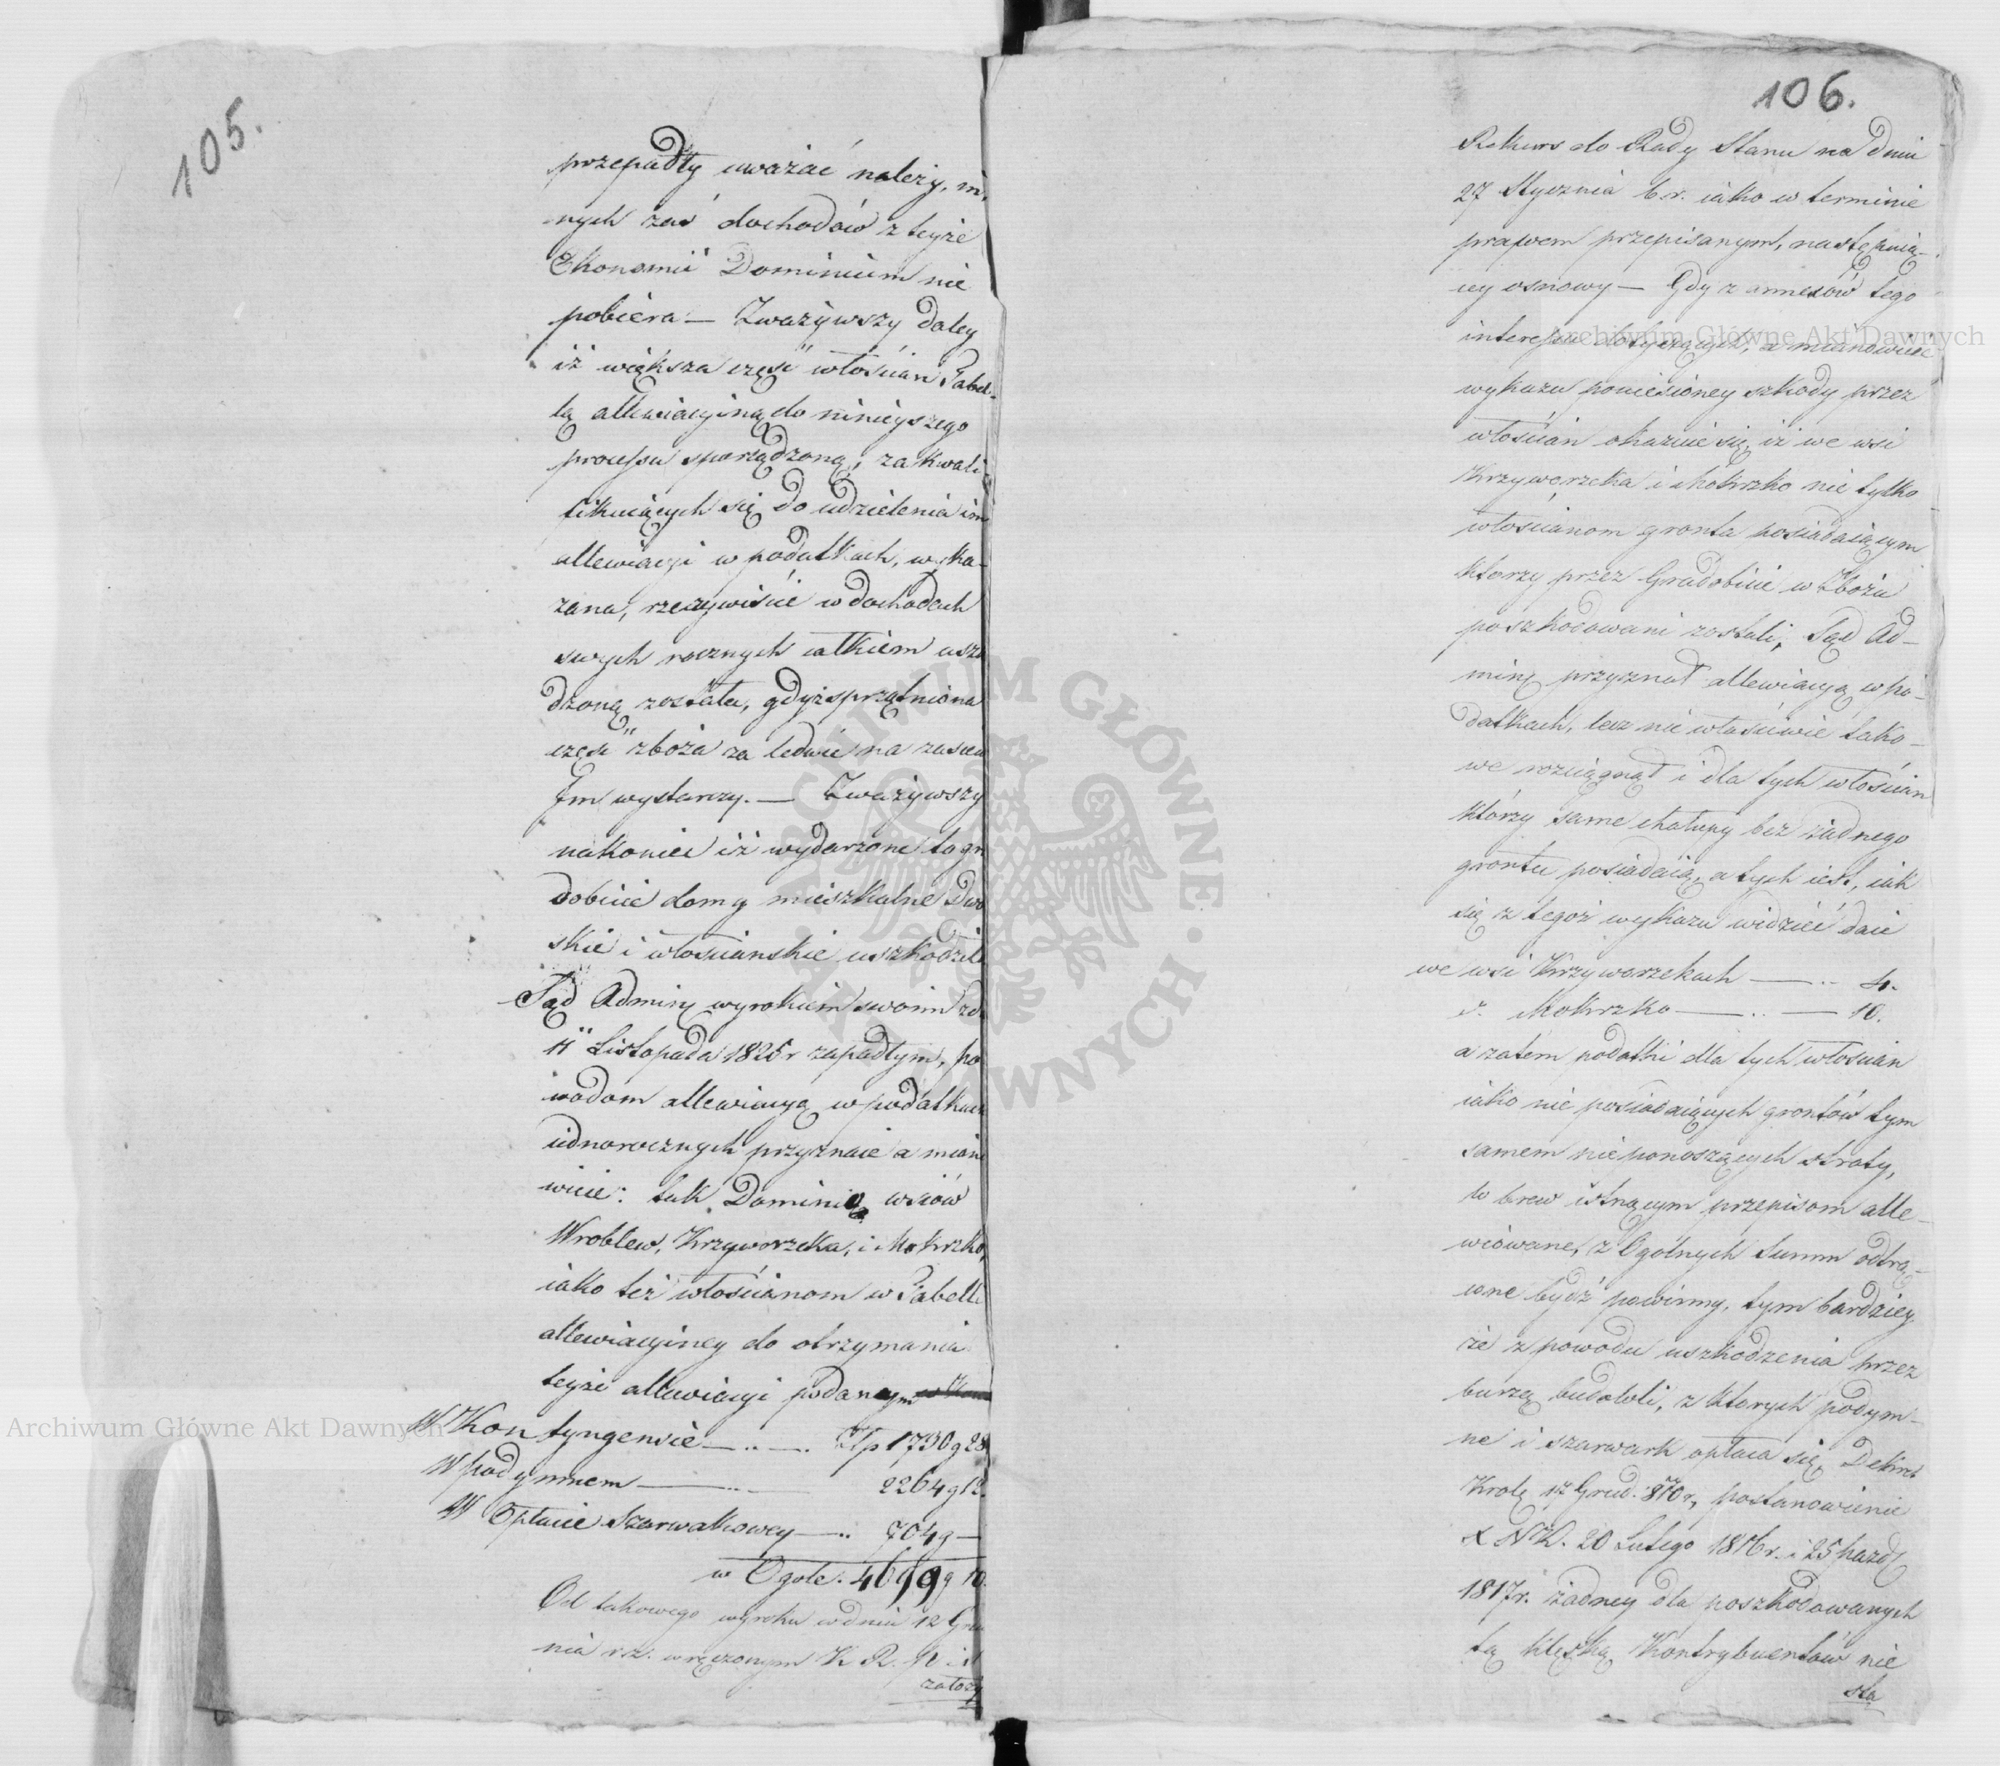 105.
przepadły uważać należy, in,
nych zaś dochodów z teyże
Ekonomii Dominium nie
pobiera — Zważywszy daley
iż większa część włościan Tabel-
lą allewiacyiną do ninieyszego
processu sporządzoną, za kwali
fikuiących się do udzielenia im
allewiacyi w podatkach, wyka-
zana, rzeczywiście w dochodach
swych rocznych całkiem uszk
dzoną została, gdyż sprzątniona
część zboża za ledwie na zasiew
Im wystarczy. — Zważywszy
nakoniec iż wydarzone to gr
dobicie domy mieszkalne Dwo
skie i włościańskie uszkodziło
Sąd Adminy wyrokiem swoim zd.
11 Listopada 1825 r zapadłym, po
wodom allewiacyą w podatkach
iednorocznych przyznaie a miano
wicie: tak Dominio wsiów
Wroblew, Krzyworzeka, i Mokrzko,
iako też włościanom w Tabelli
allewiacyiney do otrzymania
teyże allewiacyi podanym
W Kontyngensie —..—. Złp 1730 g 28
W podymnem —..— 2264 g 12.
W Opłacie szarwakowey —.. 704 g —
w Ogole. 4699 g 10.
Od takowego wyroku w dniu 12 Gru
nia r.z. wręczonym K. R. P. i S
założy
106.
Rekurs do Rady Stanu na dniu
27 Stycznia b.r. iako w terminie
prawem przepisanym, następuią-
cey osnowy — Gdy z annexów tego
interessu dotyczących, a mianowicie
wykazu poniesioney szkody przez
włościan okazuie się, iż we wsi
Krzyworzeka i Mokrzko nie tylko
włościanom gronta posiadaiącym
którzy przez Gradobicie w Zbożu
poszkodowani zostali, Sąd Ad-
miny przyznał allewiacyą w po-
datkach, lecz nie właściwie tako-
we rozciągnął i dla tych włościan
którzy same chałupy bez żadnego
grontu posiadaią, a tych iest, iak
się z tegoż wykazu widzieć daie
we wsi Krzyworzekach —.. 4.
Mokrzko —..— 10.
a zatem podatki dla tych włościan
iako nie posiadaiących grontów tym
samem nieponoszących straty,
w brew istnącym przepisom alle-
wiowane, z Ogólnych Summ odtrą-
cone bydź powinny, tym bardziey
że z powodu uszkodzenia przez
burzą budowli, z których podym-
ne i szarwark opłaca się, Dekret
Krolę 17 Grud: 810 r, postanowienie
X N K. 20 Lutego 1816 r. i 25 pazd
1817 r. żadney dla poszkodowanych
tą klęską Kontrybuentów nie
sta
Archiwum Główne Akt Dawnych
Archiwum Główne Akt Dawnych
ARCHIWUM GŁÓWNE AKT DAWNYCH